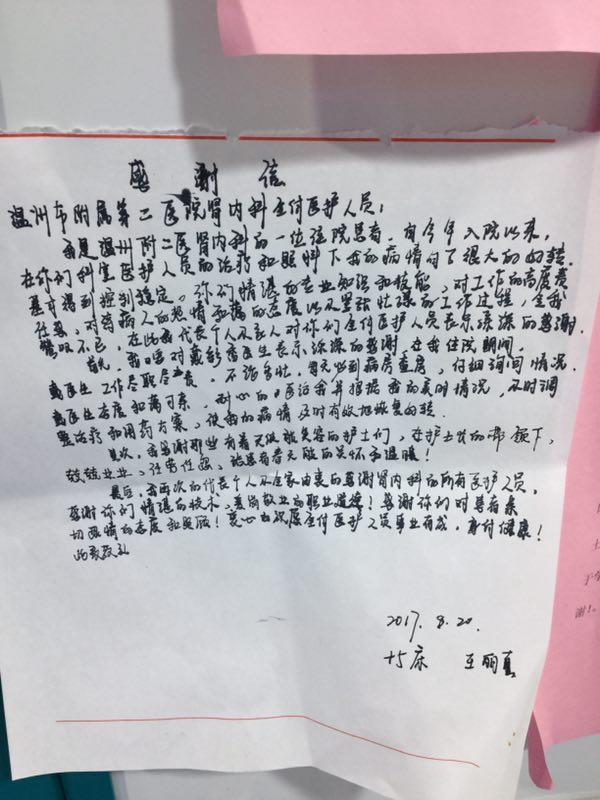 感谢信
温州市附属第二医院肾内科全体医护人员：
我是温州附二医肾内科的一位住院患者，自今年入院以来，
在你们科室医护人员的治疗和照料下我的病情有了很大的好转
基本得到控制稳定。你们精湛的专业知识和技能，对工作的高度责
任感，对病人的热情和蔼的态度以及紧张忙碌的工作过程，令我
赞叹不已，在此我代表个人及家人对你们全体医护人员表示深深的感谢。
首先，我要对戴医生表示深深的感谢，在我住院期间，
医生工作尽职尽责，不论多忙，都到病房查房，仔细询问情况。
医生态度和蔼可亲，耐心的医治我并根据我的实时情况，及时调
整治疗和用药方案，使我的病情及时有效地恢复好转。
其次，我要感谢那些有着天使般笑容的护士们，在护士长的带领下，
兢兢业业，任劳任怨，给患者无限的关怀和温暖！
最后，我再次的代表个人及全家由衷的感谢肾内科的所有医护人员，
感谢你们精湛的技术，爱岗敬业的职业道德！感谢你们对患者亲
切热情的态度和照顾！衷心的祝愿全体医护人员事业有成，身体健康！
此致敬礼
2017.8.20.
十5床 王丽真
谢！